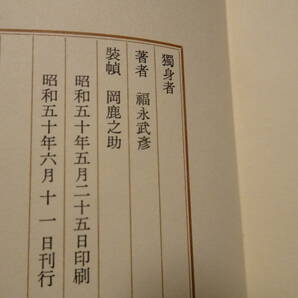 獨身者
著者　福永武彥
裝幀　岡鹿之助
昭和五十年五月二十五日印刷
昭和五十年六月十一日刊行